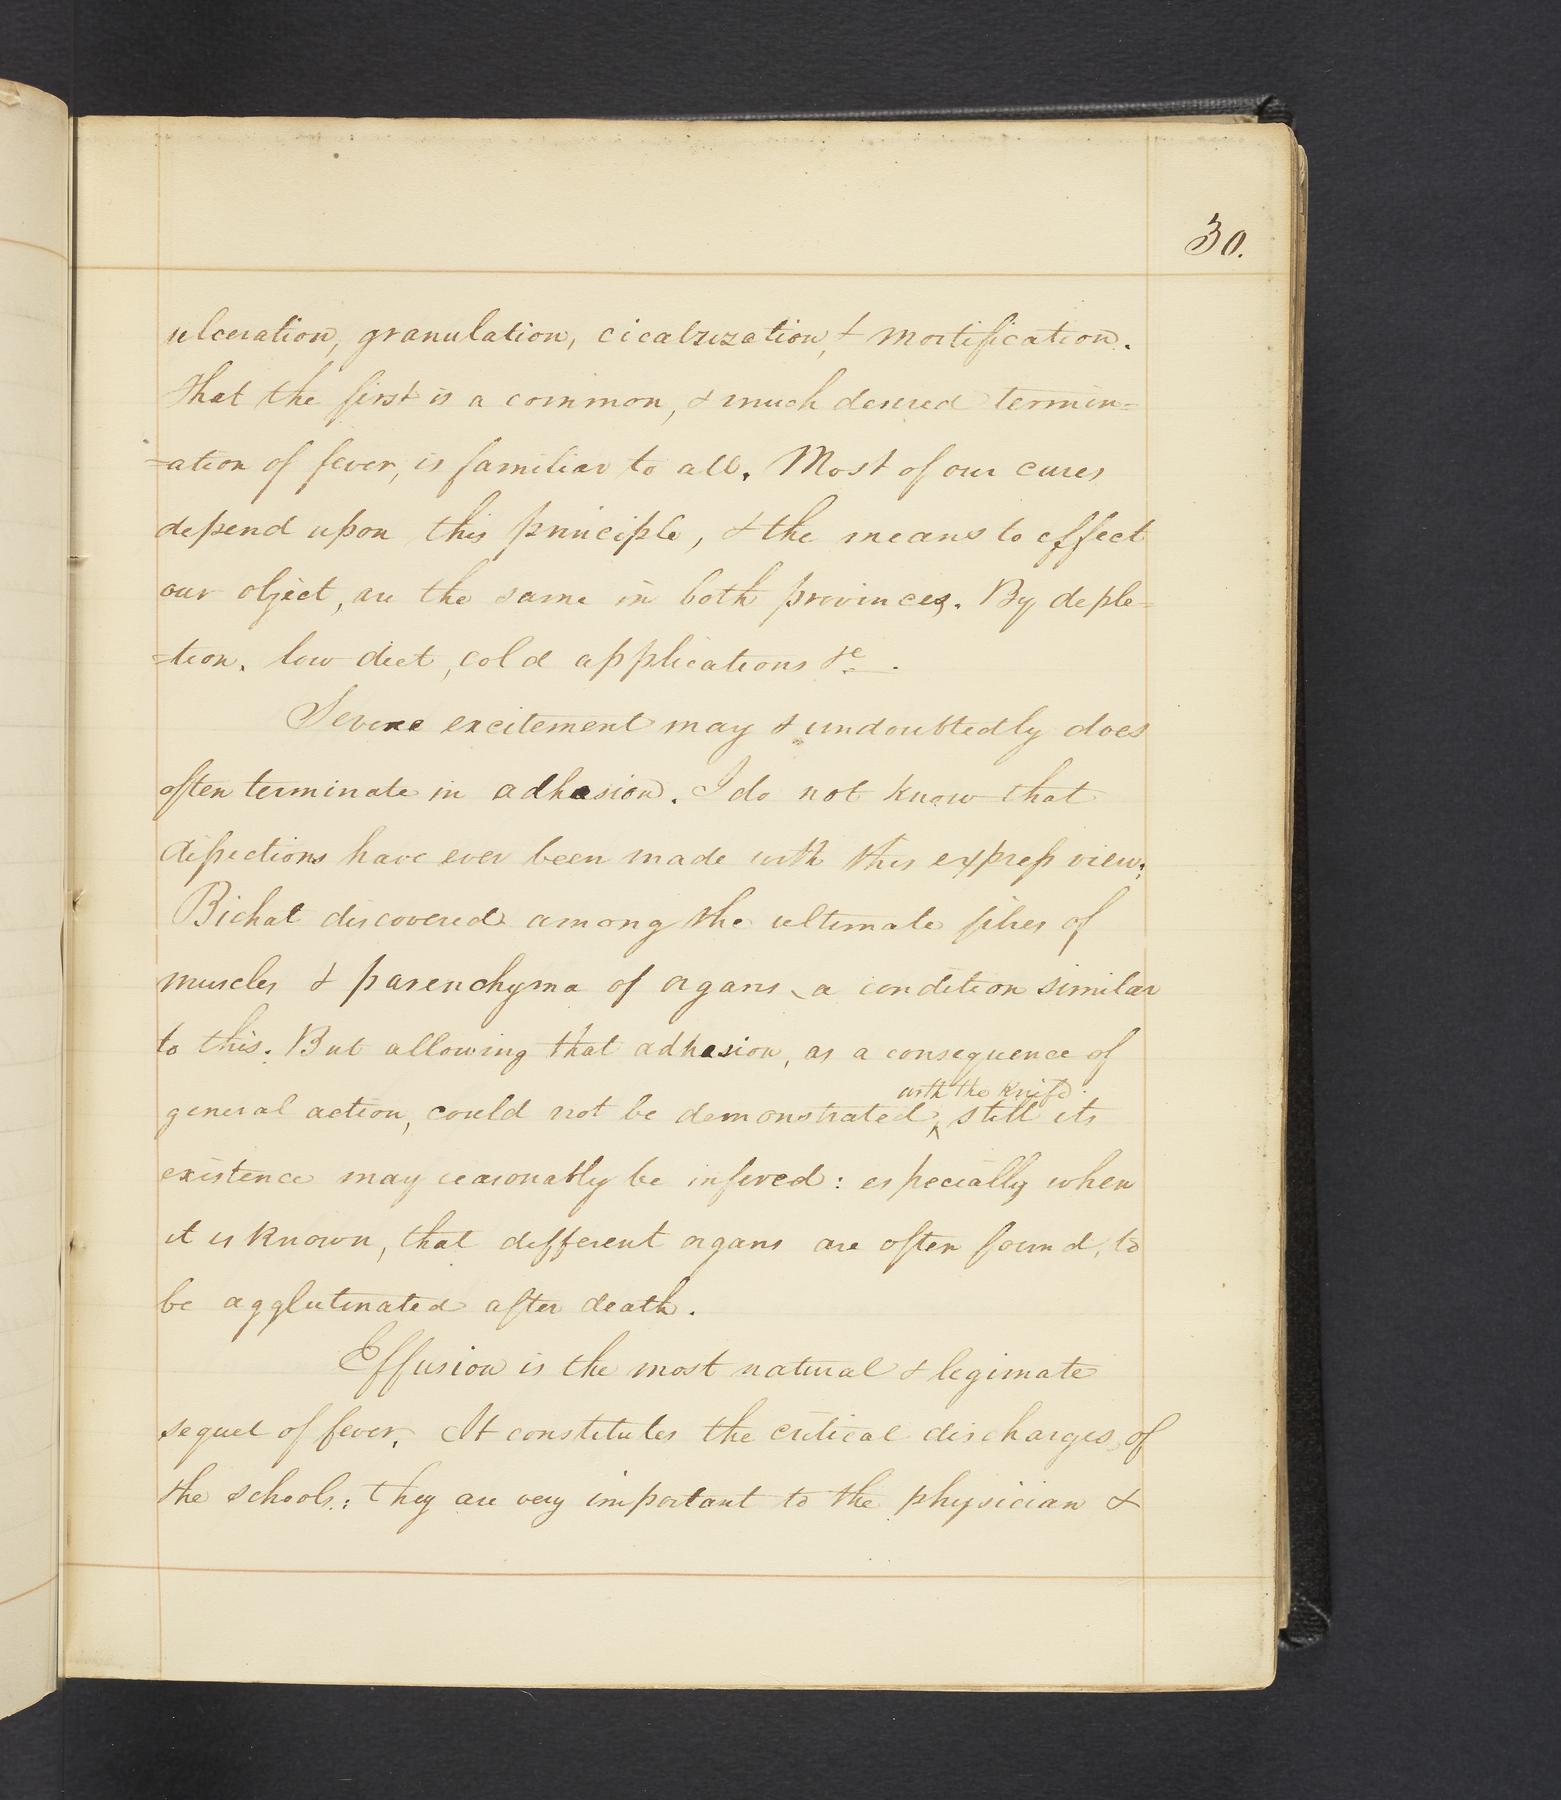 30.
ulceration, granulation, cicatrization, & mortification.
That the first is a common, & much desired termin=
=ation of fever, is familiar to all. Most of our cures
depend upon this principle, & the means to effect
our object, are the same in both provinces. By deple=
=tion. low diet, cold applications &c.
Severe excitement may & undoubtedly does
often terminate in adhesion. I do not know that
dissections have ever been made with this express view.
Bichat discovered among the ultimate fibres of
muscles & parenchyma of organs, a condition similar
to this. But allowing that adhesion, as a consequence of
with the knife.
general action, could not be demonstrated, still its
existence may reasonably be infered: especially when
it is known, that different organs are often found, to
be agglutinated after death.
Effusion is the most natural & legimate
sequel of fever. It constitutes the critical discharges of
the schools: they are very important to the physician &